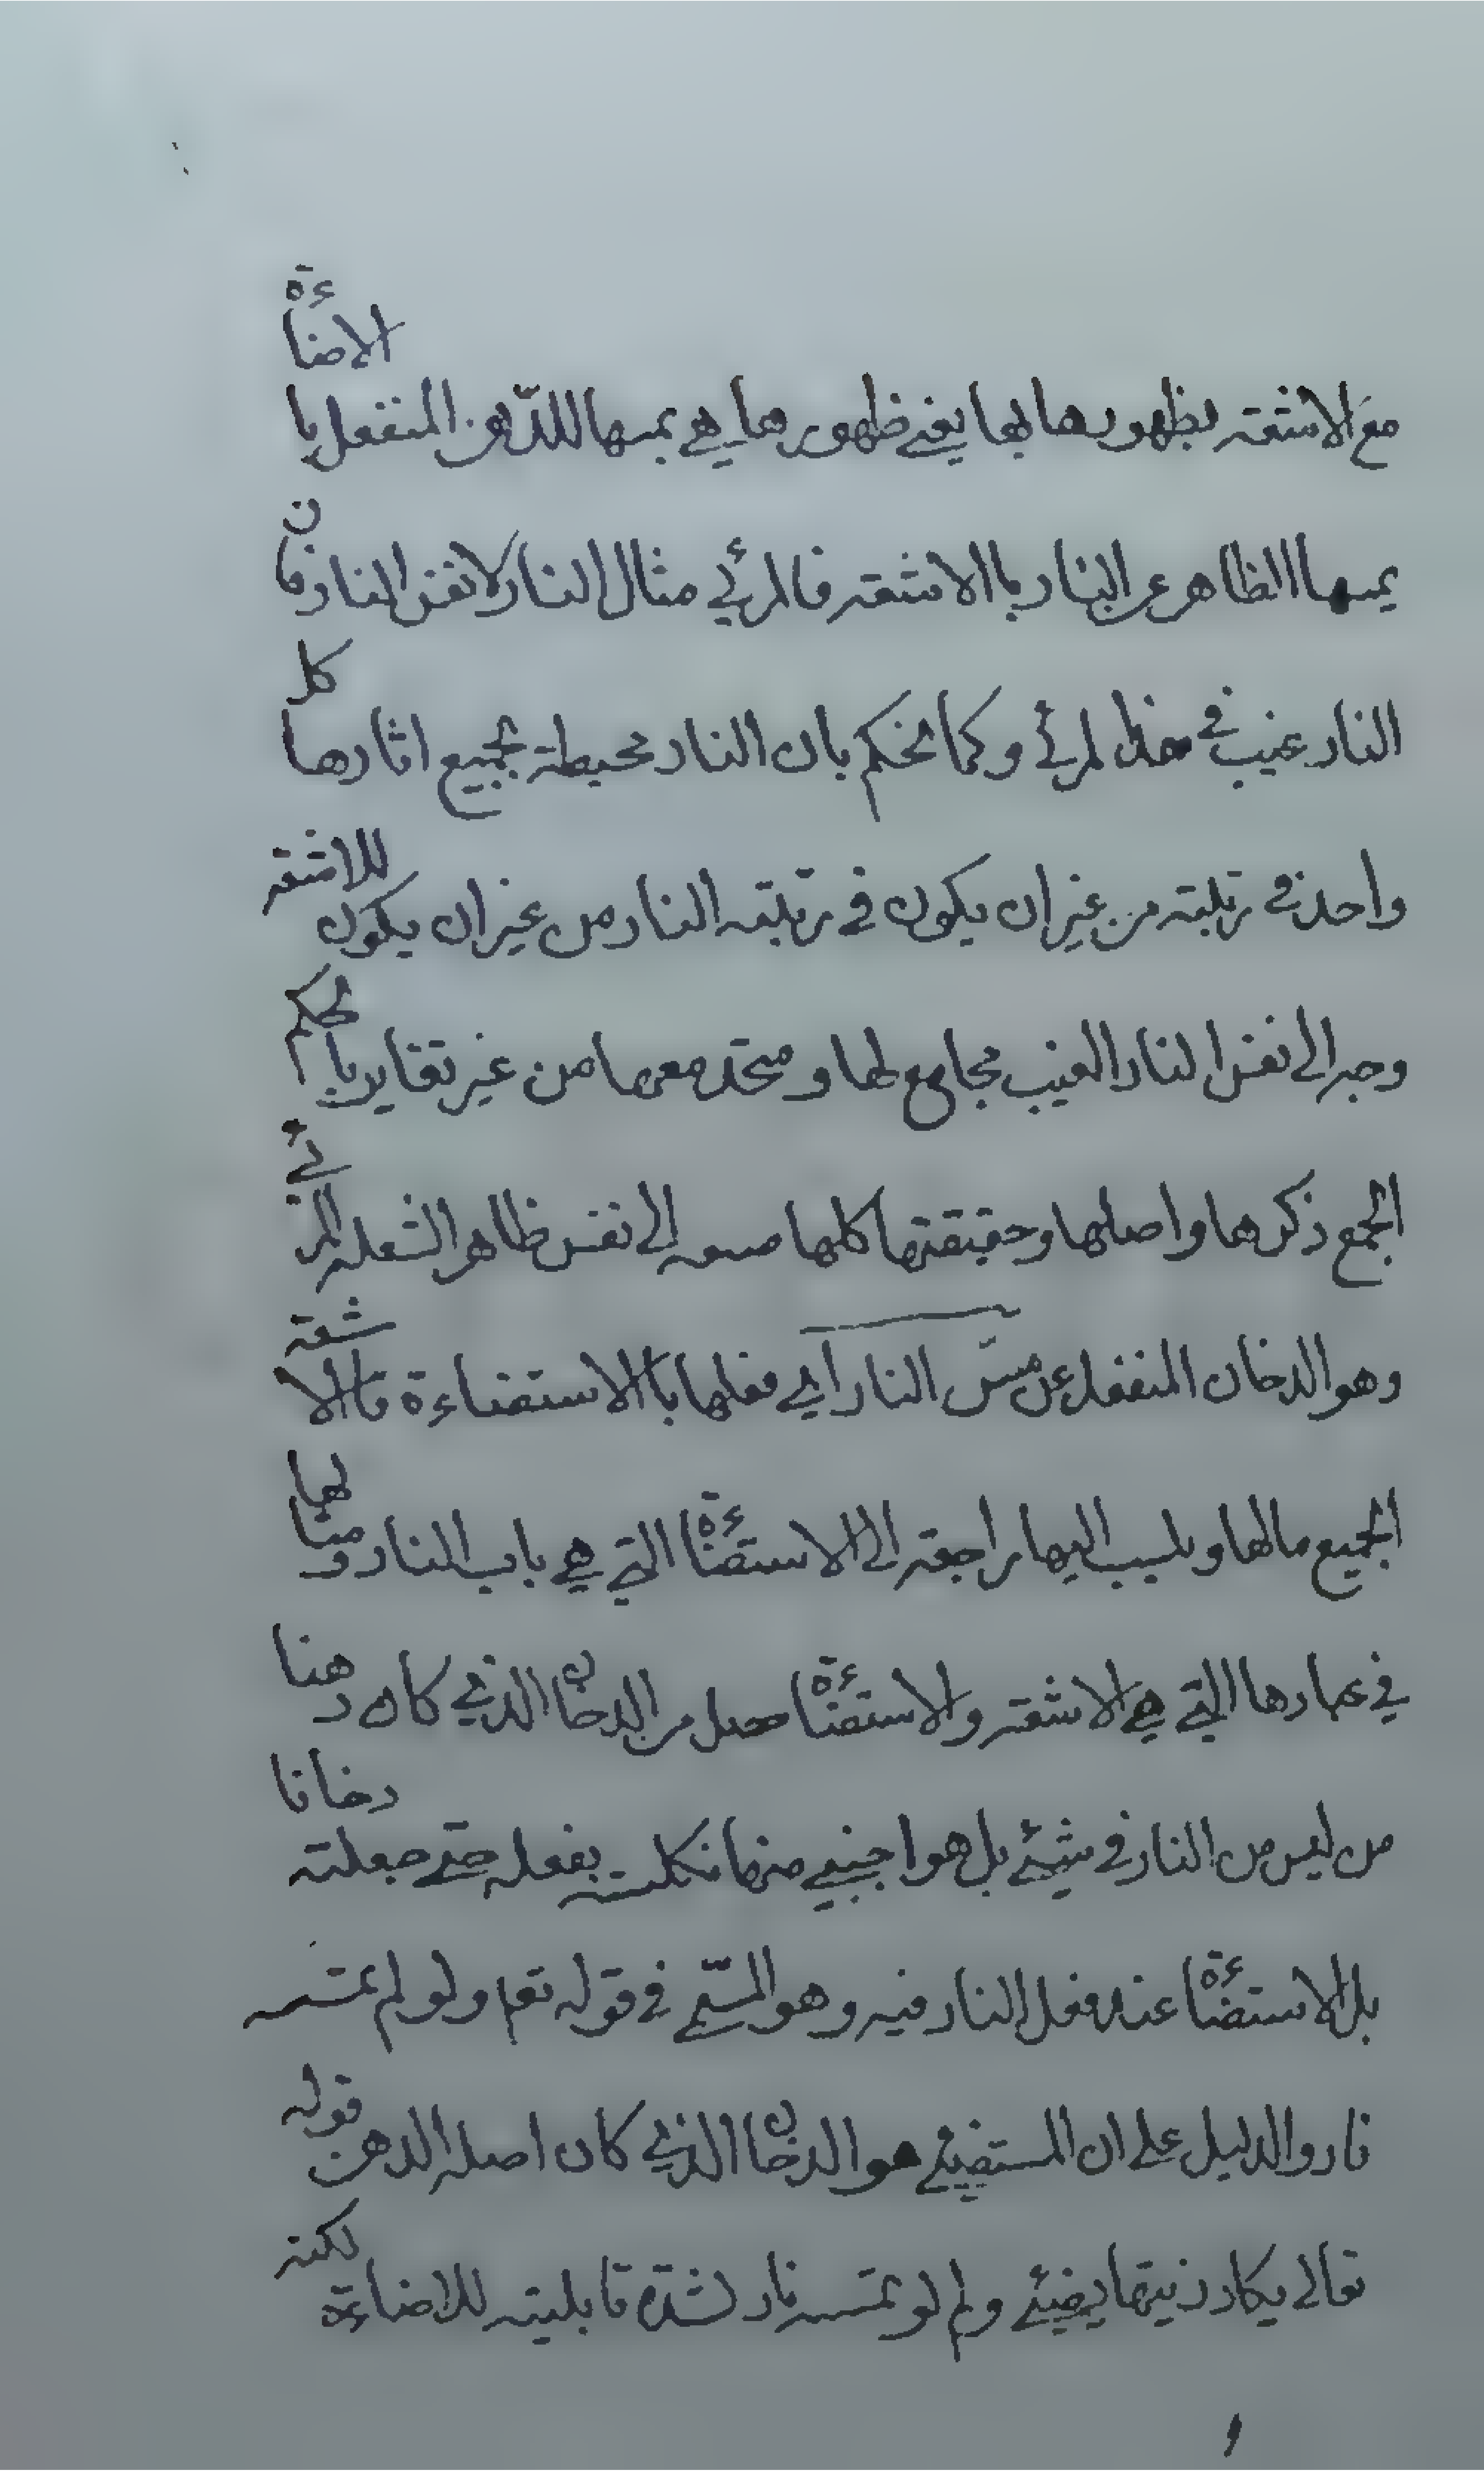 مع الاشعة بظهورها بها يعني ظهورها هي بمسها للدهن المنفعل با الاضاءة
بمسها الظاهر عن النار با الاشعة فالمرئي مثال النار لا نفس النار فان
النار غيب في هذا المرئي وكما نحكم بان النار محيطة بجميع اثارها كل
واحد في رتبته من غير ان يكون في رتبته النار من غير ان يكون للاشعة
وجه الى نفس النار الغيب مجامع لها و متحد معها من غير تغاير يا بحكم
الجمع ذكرها واصلها وحقيقتها كلها الى نفس ظاهر الشعلة المرئي
وهو الدخان المنفعل عن مس النار اي فعلها با الاستضاءة فا الاشعة
الجميع مالها وينسب اليها راجعة الى الاستضاءة التي هي باب النار ومثالها
في عمارها التي هي الاشعة والاستضاءة من الدخان الذي كان دهنا
من ليس من النار في شيئ بل هو اجنبي منها نكلت بفعله حتى جعلته دخانا
بل الاستضاءة عند فعل النار فيه وهو المسمى في قوله تعم ولو لم تمسسه
نار والدليل على ان المستضيئ هو الدخان الذي كان اصله الدهن قوله
تعالى يكاد زيتها يضيئ ولم لو تمسسه نار لشدة قابليته للاضاءة لكنه